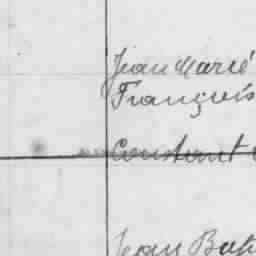 Jean Marie
François
Constant
Jean Bap